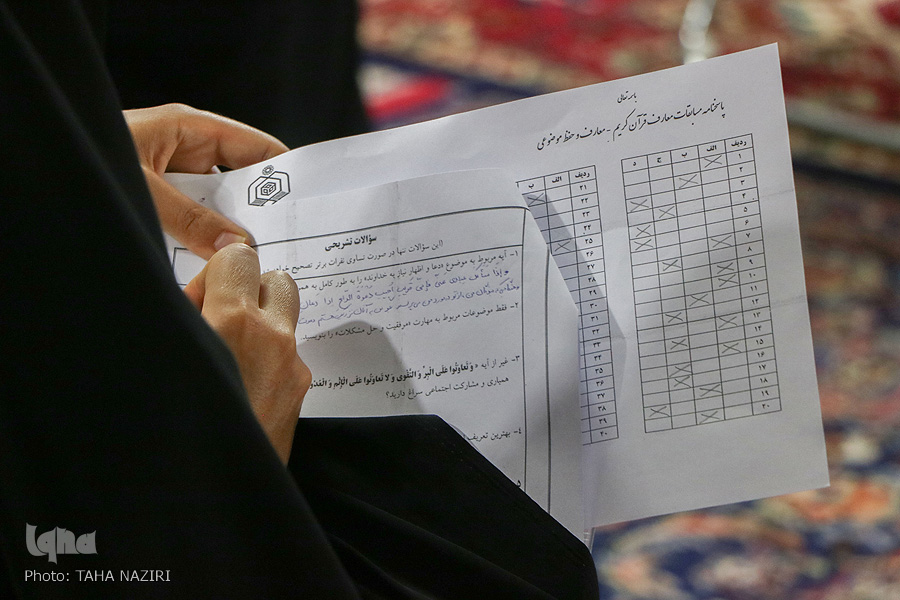 باسمه تعالی
پاسخنامه مسابقات معارف قرآن کریم - معارف و حفظ موضوعی
ردیف الف ب ج د
۱
۲
۳
۴
۵
۶
۷
۸
۹
۱۰
۱۱
۱۲
۱۳
۱۴
۱۵
۱۶
۱۷
۱۸
۱۹
۲۰
ردیف الف ب
۲۱
۲۲
۲۳
۲۴
۲۵
۲۶
۲۷
۲۸
۲۹
۳۰
۳۱
۳۲
۳۳
۳۴
۳۵
۳۶
۳۷
۳۸
۳۹
۴۰
سؤالات تشریحی
(این سؤالات تنها در صورت تساوی نفرات برتر تصحیح
۱- آیه مربوط به موضوع «دعا و اظهار نیاز به خداوند» را به طور کامل به
و إذا سألک عبادی عنی فإنی قریب أجیب دعوة الداع إذا دعان
۲- فقط موضوعات مربوط به مهارت «موفقیت و حل مشکلات» را بنویسید.
۳- غیر از آیه «وَ تَعاوَنُوا عَلَى الْبِرِّ وَ التَّقْوى وَ لا تَعاوَنُوا عَلَى الْإِثْمِ وَ الْعُدْو
همیاری و مشارکت اجتماعی سراغ دارید؟
۴- بهترین تعریف
۵
Iqna
Photo: TAHA NAZIRI